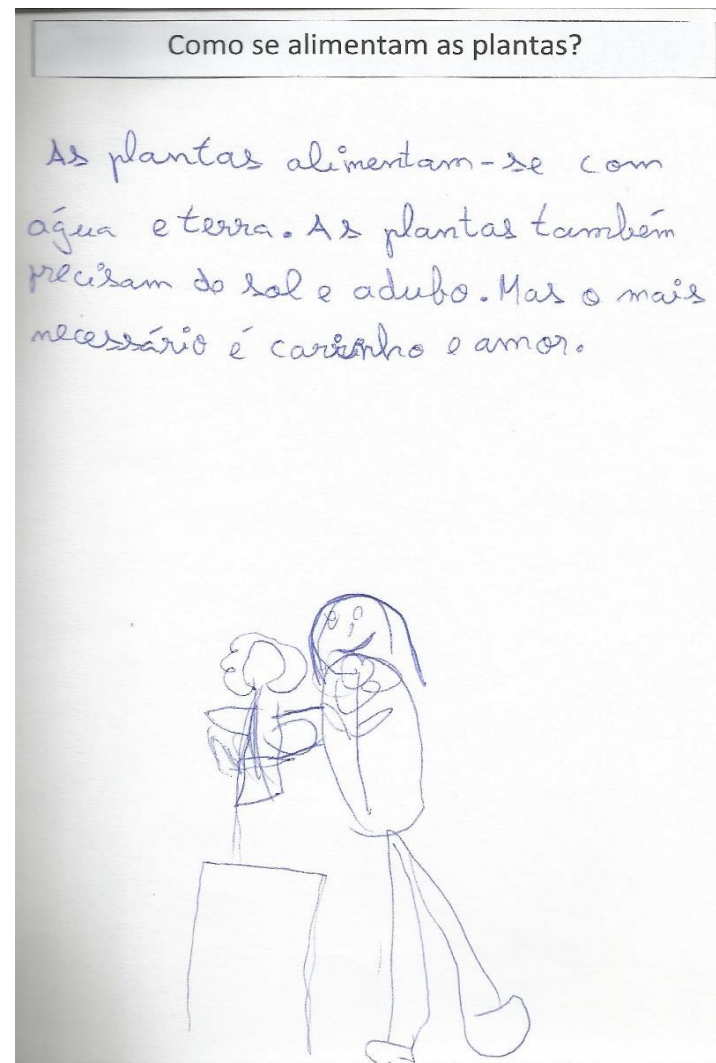 Como se alimentam as plantas?
As plantas alimentam-se com
água e terra. As plantas também
precisam do sol e adubo. Mas o mais
necessário é carinho e amor.